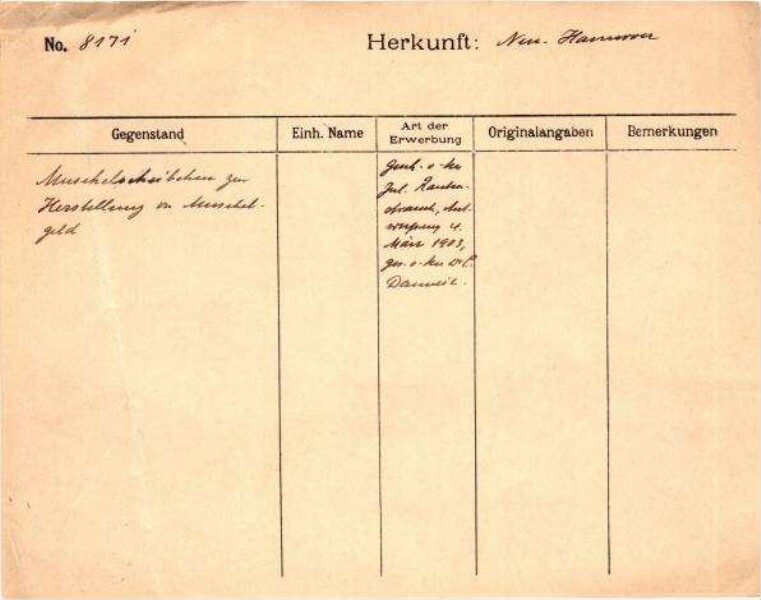 No. 8171 Herkunft: Neu-Hannover
Gegenstand Einh. Name Art der Erwerbung Originalangaben Bemerkungen
Muschelscheibchen zur
Herstellung von Muschel-
geld
Gesch. v. Hn
Jul.
Ant-
werpen 4.
März 1903,
ges. v. Hn